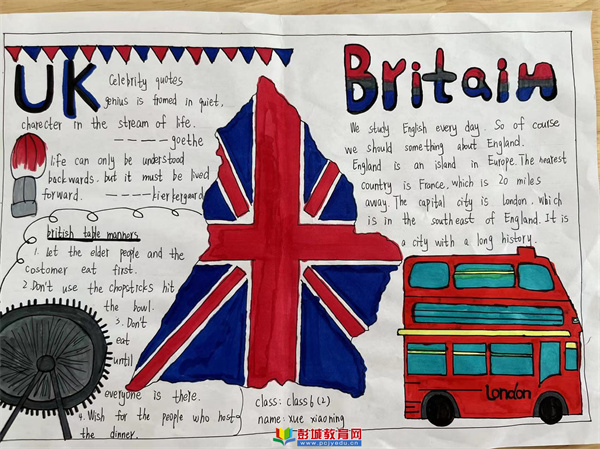 UK
Celebrity quotes
genius is fromed in quiet,
charecter in the stream of life.
-----goethe
life can only be understood
backwards. but it must be lived
forward. ----kierkergaard
british table manners
1. let the elder people and the
costomer eat first.
2. Don't use the chopsticks hit
the bowl.
3. Don't
eat
until
everyone is there.
4. Wish for the people who host
the dinner.
Britain
We study English every day. So of course
we should something about England.
England is an island in Europe. The nearest
country is France, which is 20 miles
away. The capital city is london, which
is in the southeast of England. It is
a city with a long history.
London
class: class 6 (2)
name: xue xiaoning
彭城教育网
www.pcjyedu.cn